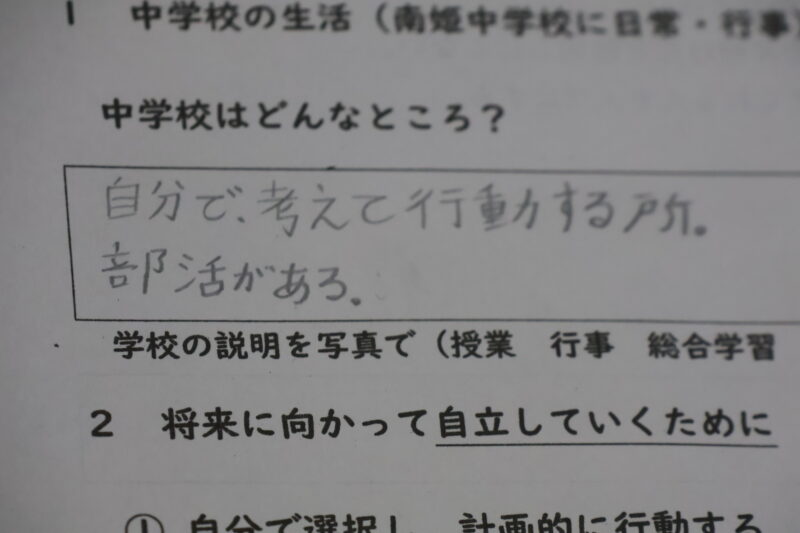 1 中学校の生活（南姫中学校に日常・行事）
中学校はどんなところ？
自分で、考えて行動する所。
部活がある。
学校の説明を写真で（授業 行事 総合学習
2 将来に向かって自立していくために
① 自分で選択し、計画的に行動する